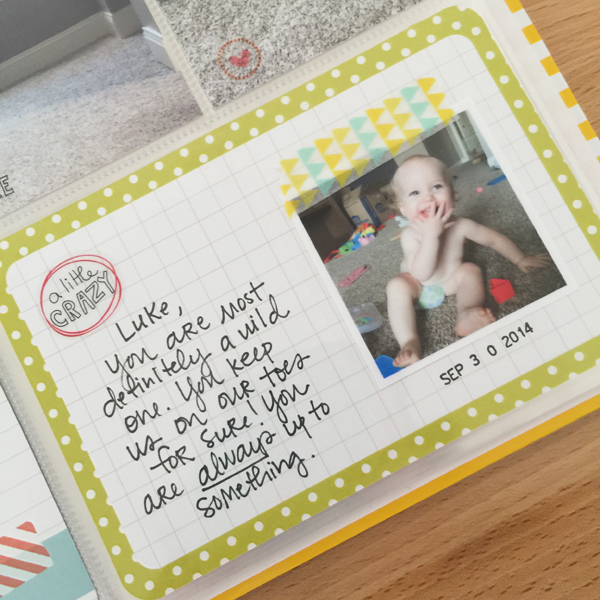 a little
CRAZY
Luke,
you are most
definitely a wild
one. You keep
us on our toes
for sure! You
are always up to
something.
SEP 3 0 2014